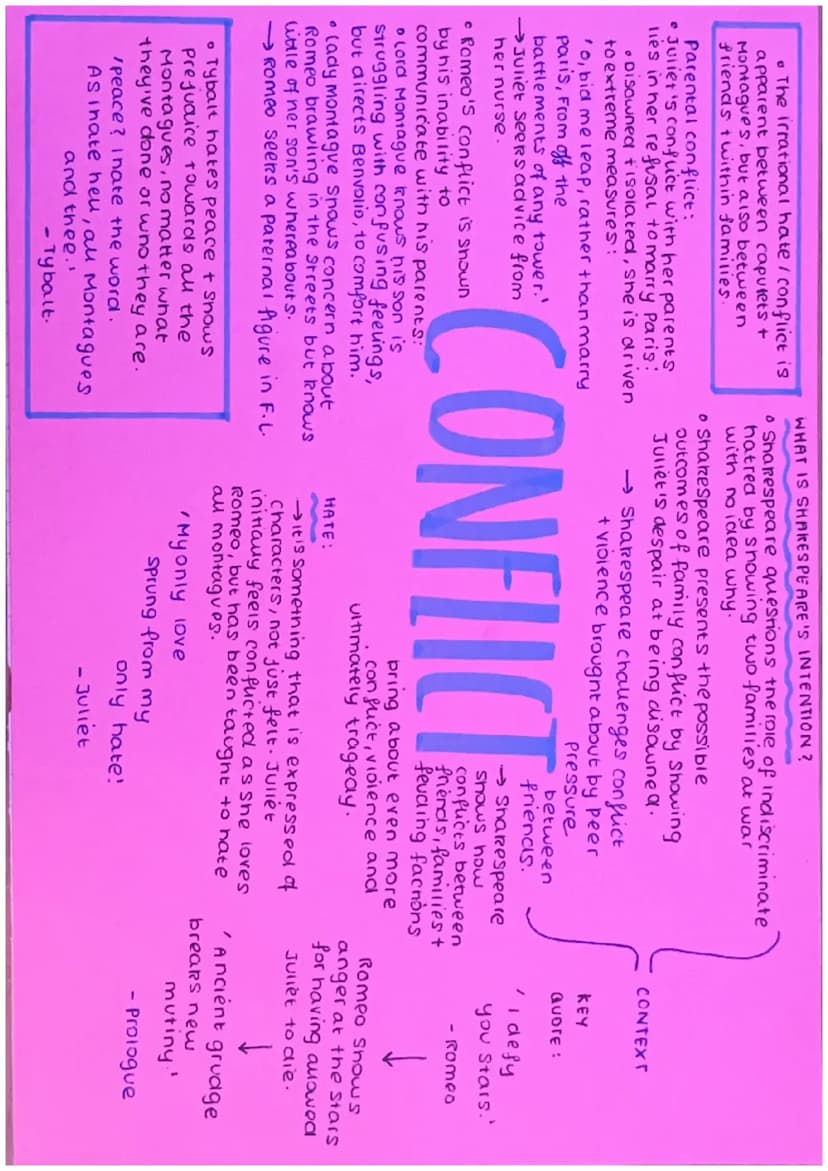 • The irrational hate / conflict is
apparent between capulets +
Montagues, but also between
friends + within families.
Parental conflict:
• Juliet's conflict with her parents
lies in her refusal to marry Paris:
• Disowned + isolated, she is driven
to extreme measures:
'O, bid me leap, rather than marry
Paris, From off the
battlements of any tower.'
→ Juliet seeks advice from
her nurse.
• Romeo's conflict is shown
by his inability to
communicate with his parents:
• Lord Montague knows his son is
struggling with confusing feelings,
but directs Benvolio, to comfort him.
• Lady Montague shows concern about
Romeo brawling in the streets but knows
little of her son's whereabouts.
→ Romeo seeks a paternal figure in F.L.
• Tybalt hates peace + shows
prejudice towards all the
Montagues, no matter what
they've done or who they are.
'peace? I hate the word.
As I hate hell, all Montagues
and thee.'
- Tybalt.
CONFLICT
WHAT IS SHAKESPEARE'S INTENTION?
• Shakespeare questions the role of indiscriminate
hatred by showing two families at war
with no idea why.
• Shakespeare presents the possible
outcomes of family conflict by showing
Juliet's despair at being disowned.
→ Shakespeare challenges conflict
+ violence brought about by peer
pressure
between
friends.
→ Shakespeare
shows how
conflicts between
friends, families +
feuding factions
bring about even more
conflict, violence and
ultimately tragedy.
HATE:
→ It's something that is expressed of
characters, not just felt. Juliet
initially feels conflicted as she loves
Romeo, but has been taught to hate
all montagues.
'My only love
sprung from my
only hate!'
- Juliet
CONTEXT
KEY
QUOTE:
'I defy
you stars.'
- Romeo
↓
Romeo shows
anger at the stars
for having allowed
Juliet to die.
↓
'Ancient grudge
breaks new
mutiny.'
- Prologue